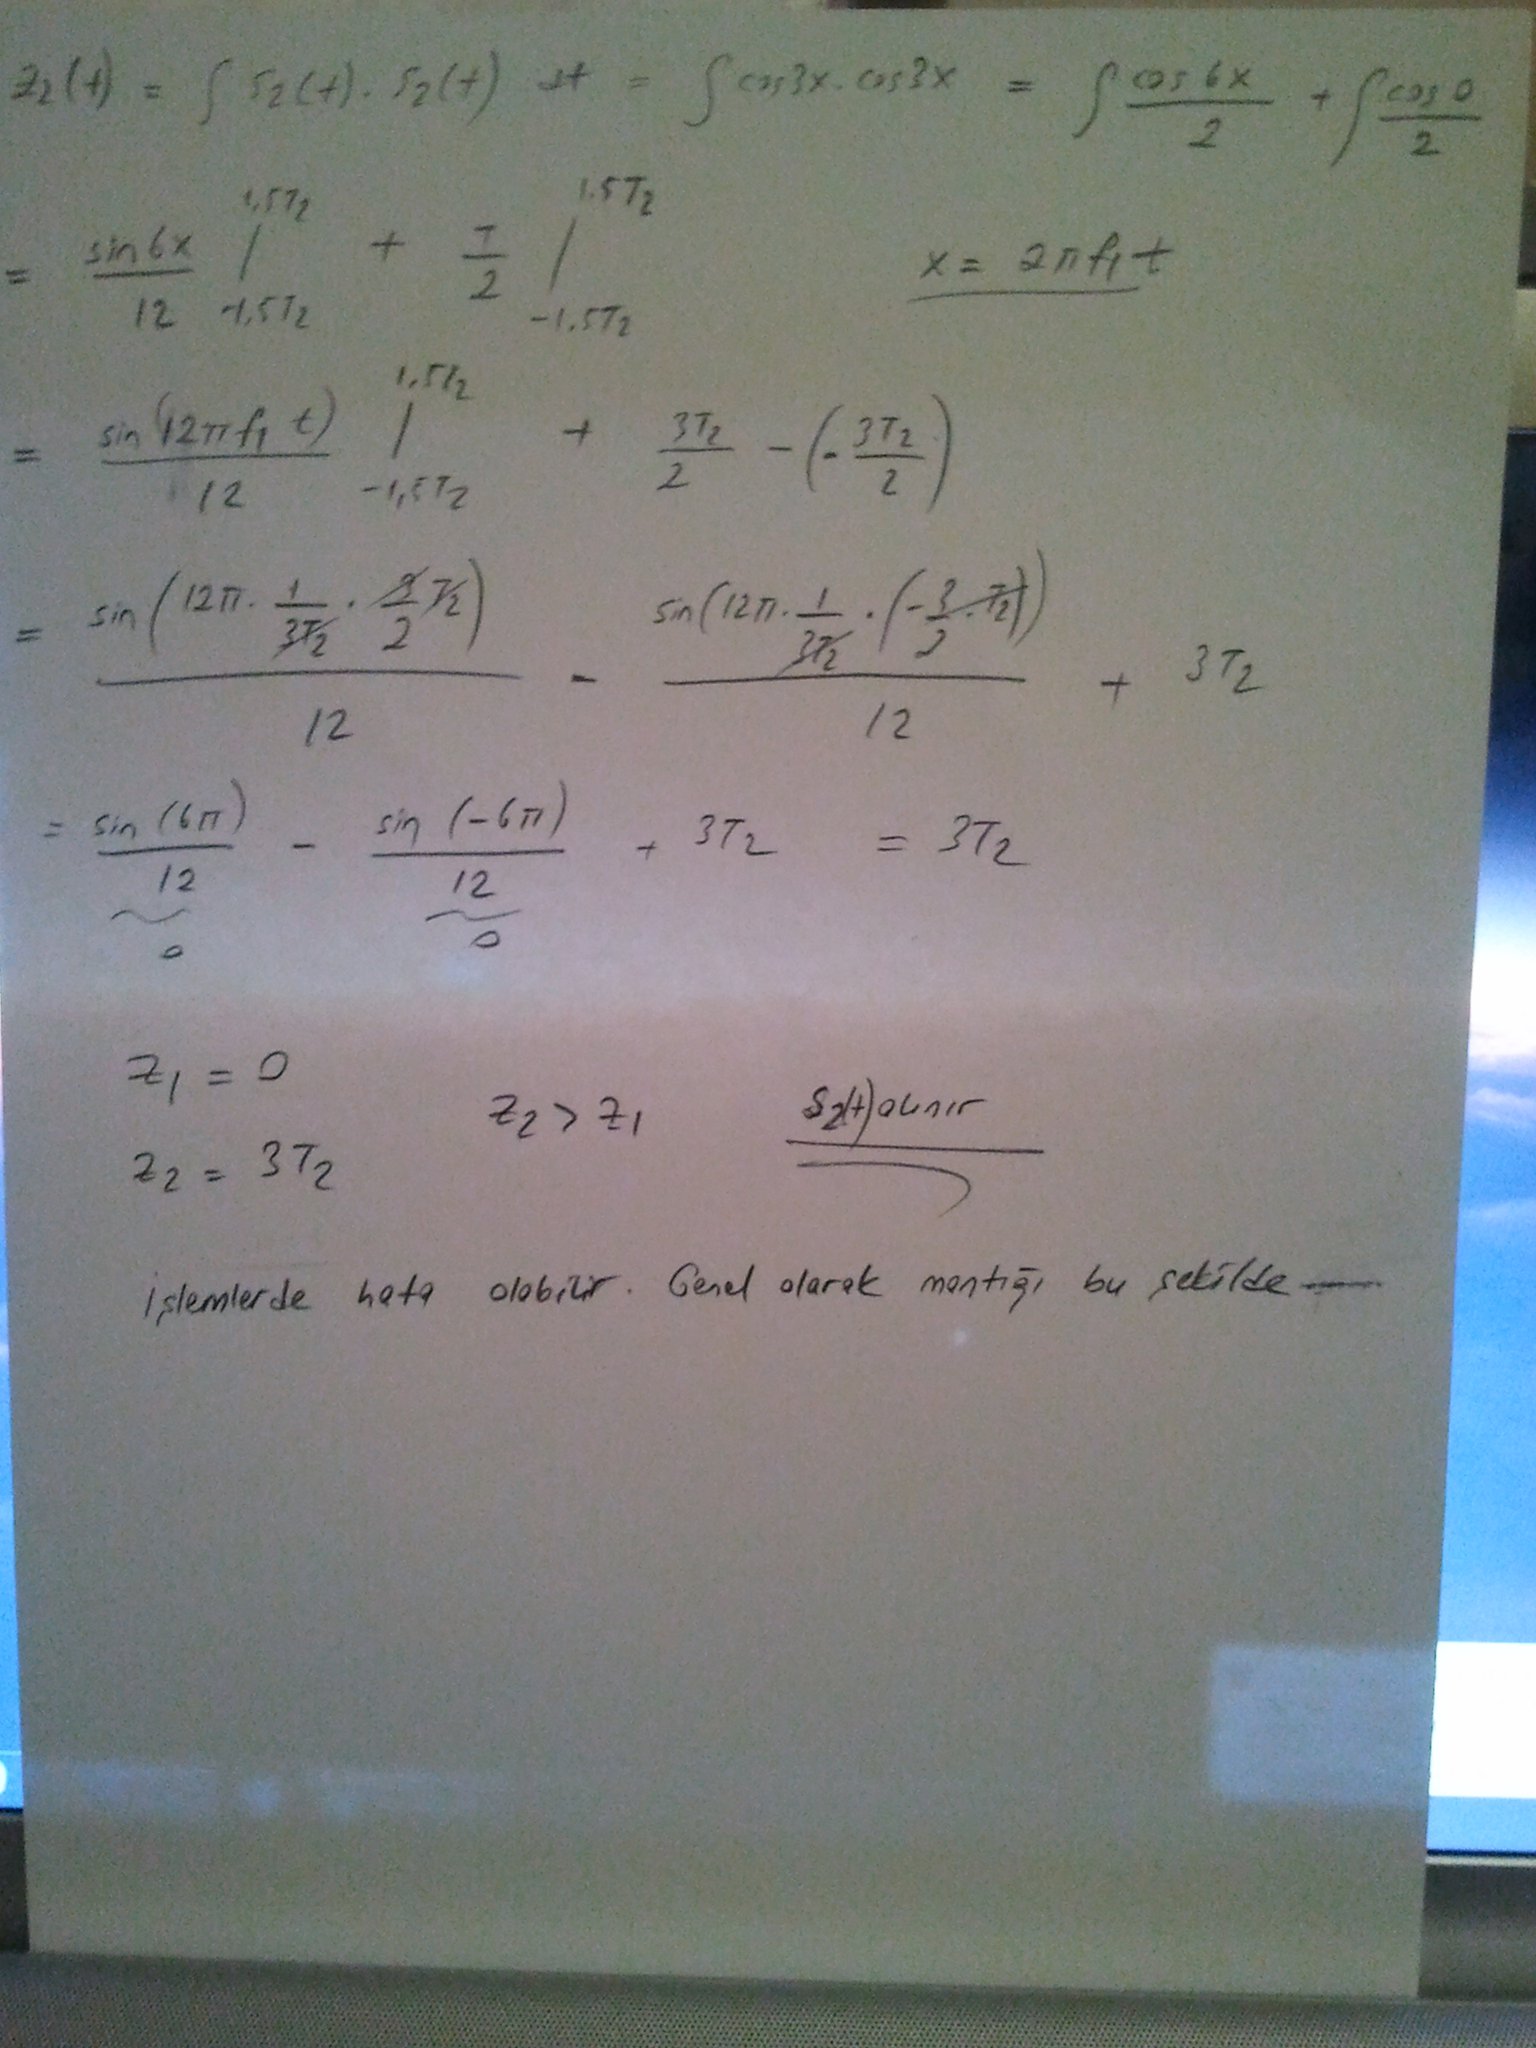 z₂(t) = ∫ s₂(t) . s₂(t) dt = ∫ cos3x . cos3x = ∫ cos6x/2 + ∫ cos0/2
= sin6x/12 |₋₁.₅T₂^1.5T₂ + T/2 |₋₁.₅T₂^1.5T₂ x = 2πf₁t
= sin(12πf₁ t)/12 |₋₁,₅T₂^1.5T₂ + 3T₂/2 - (-3T₂/2)
= sin(12π . 1/3T₂ . 3/2 T₂)/12 - sin(12π . 1/3T₂ . (-3/2 . T₂))/12 + 3T₂
= sin(6π)/12 - sin(-6π)/12 + 3T₂ = 3T₂
0 0
z₁ = 0
z₂ > z₁ s₂(t) alınır
z₂ = 3T₂
işlemlerde hata olabilir. Genel olarak mantığı bu şekilde